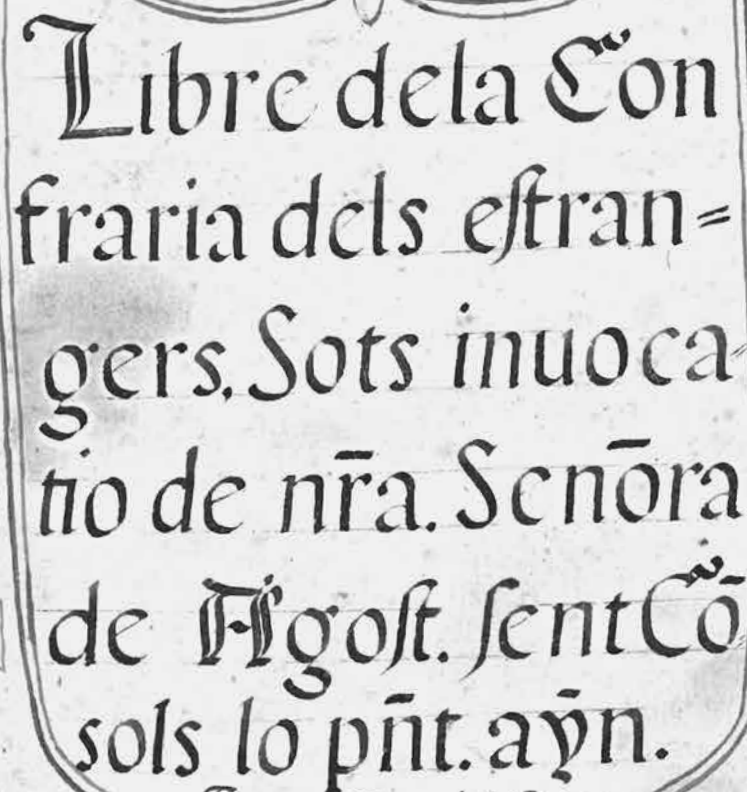 Libre dela Con
fraria dels eſtran=
gers. Sots inuoca-
tio de nr̄a. Senōra
de Agoſt. ſent Cō
sols lo pn̄t. aȳn.